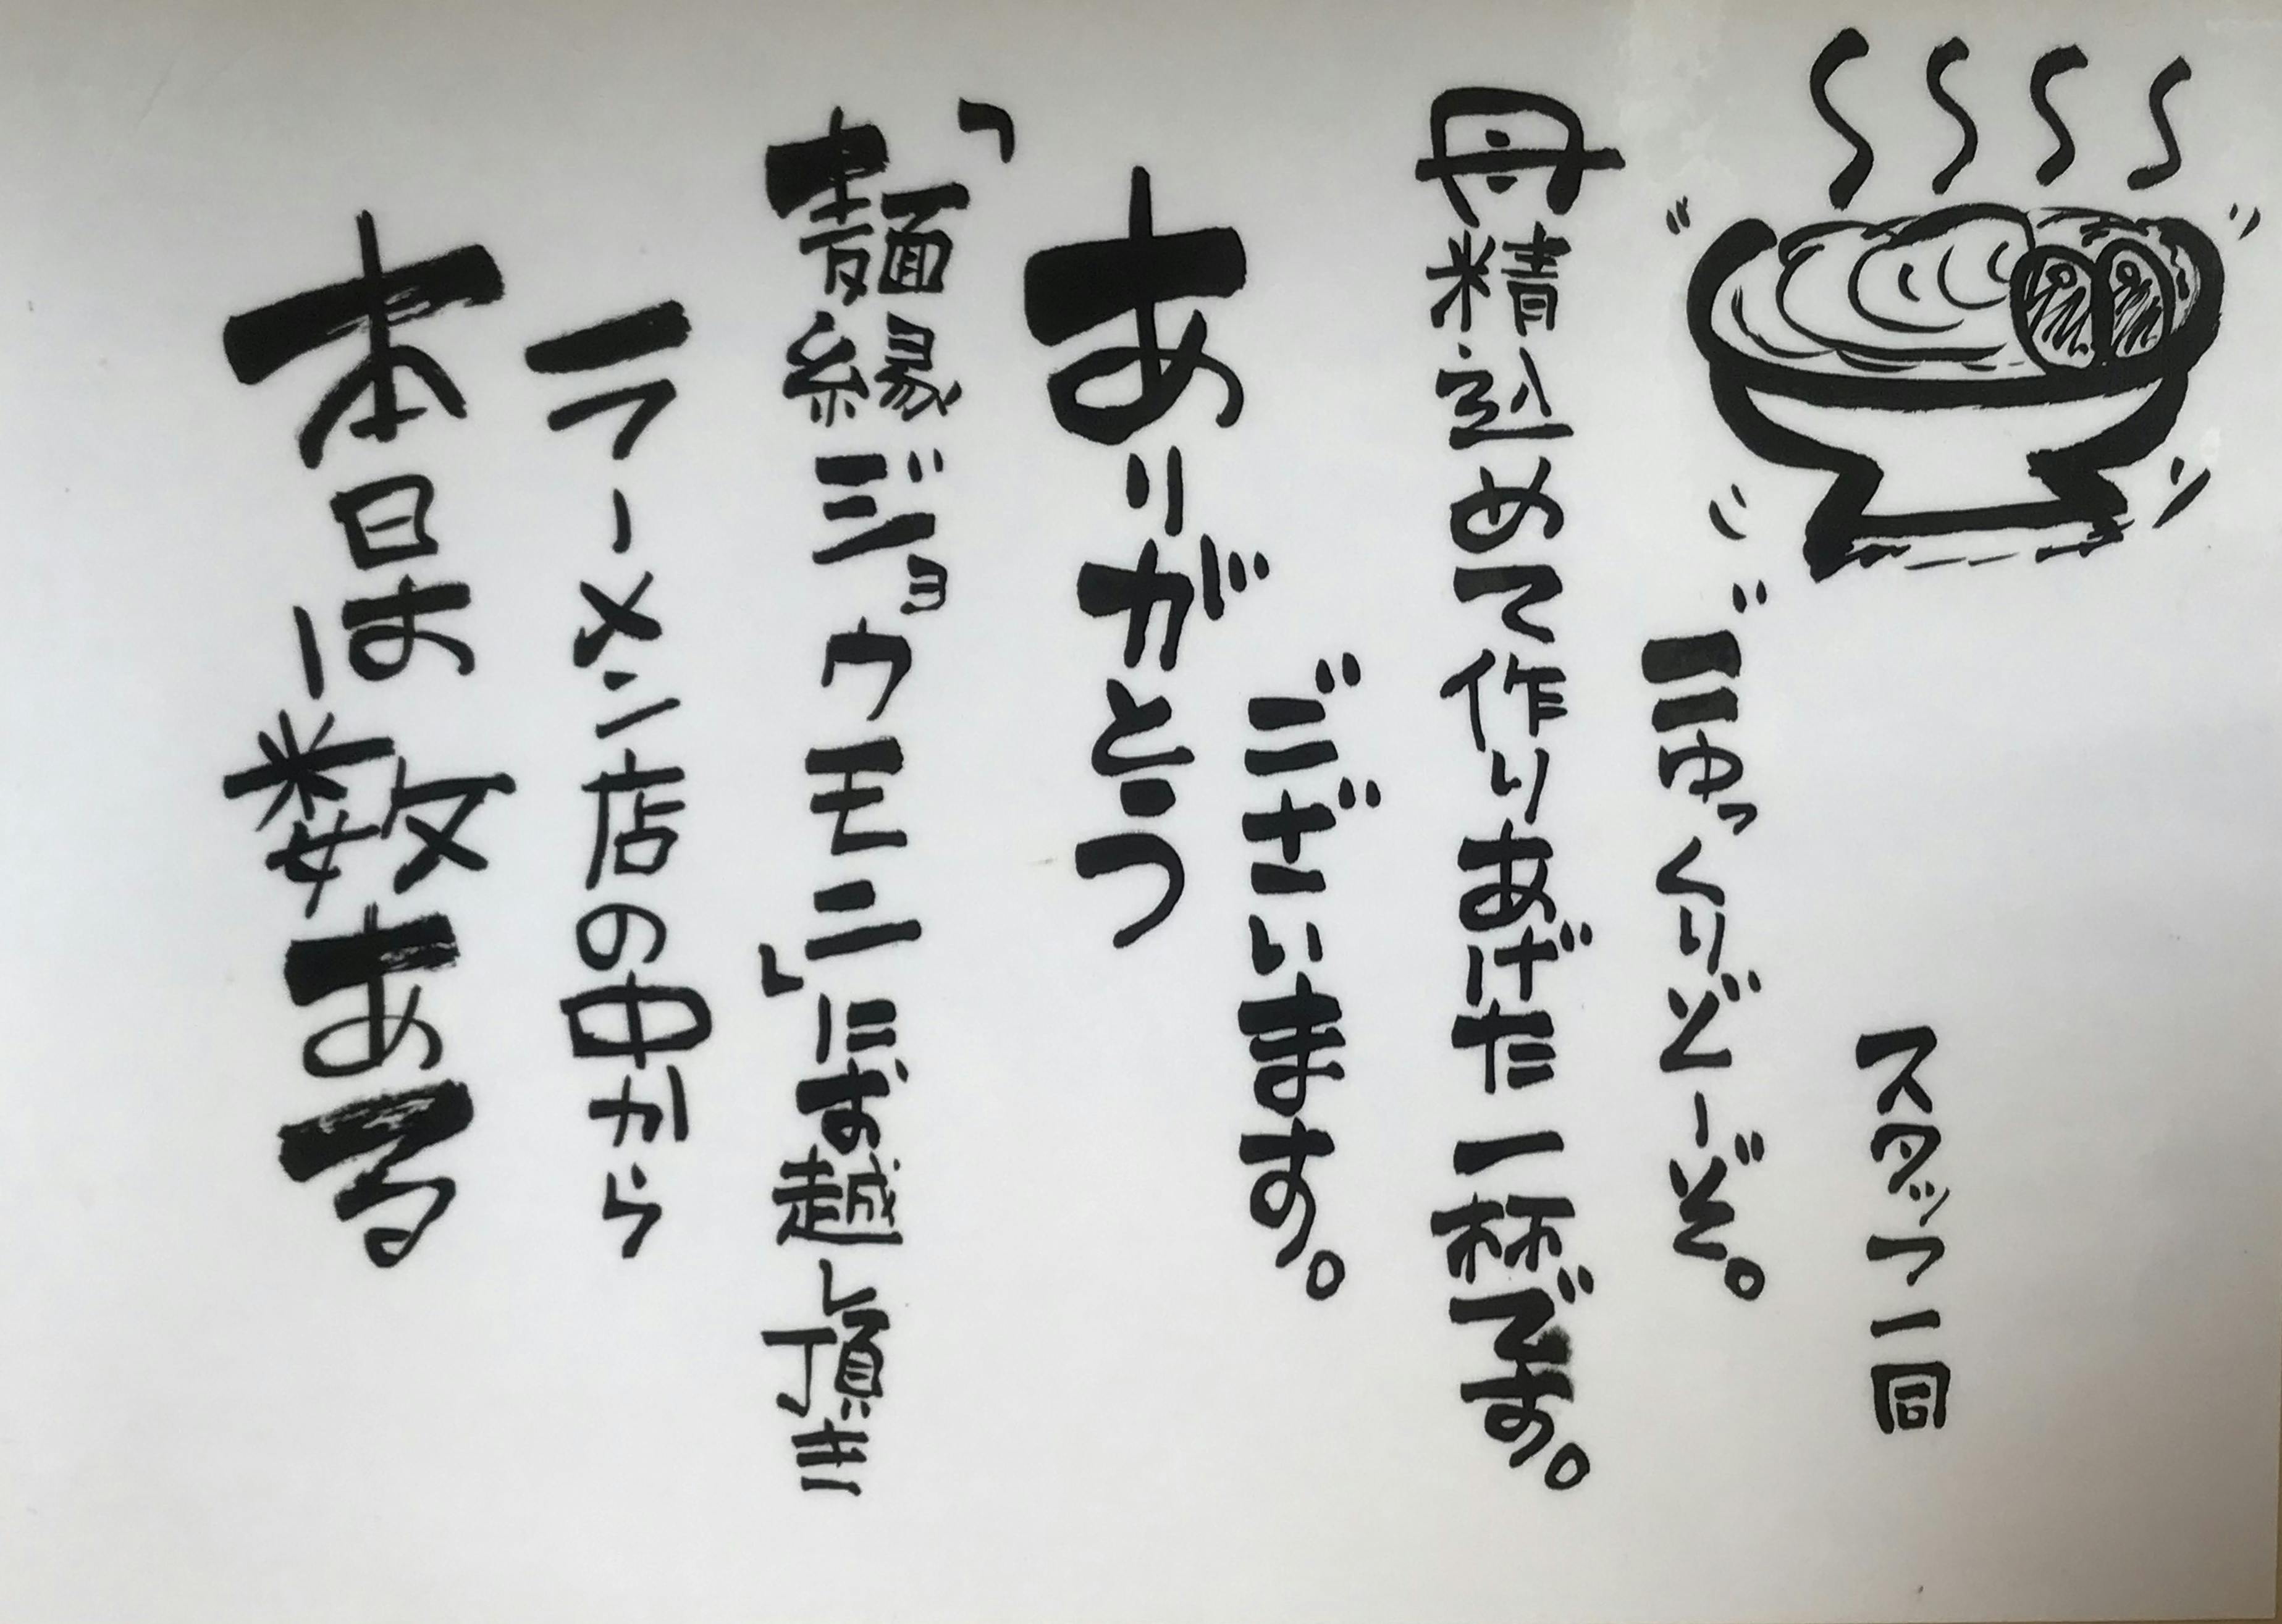 本日は数ある
ラーメン店の中から
「麺縁ジョウモニ」にお越し頂き
ありがとう
ございます。
丹精込めて作りあげた一杯です。
ごゆっくりどーぞ。
スタッフ一同